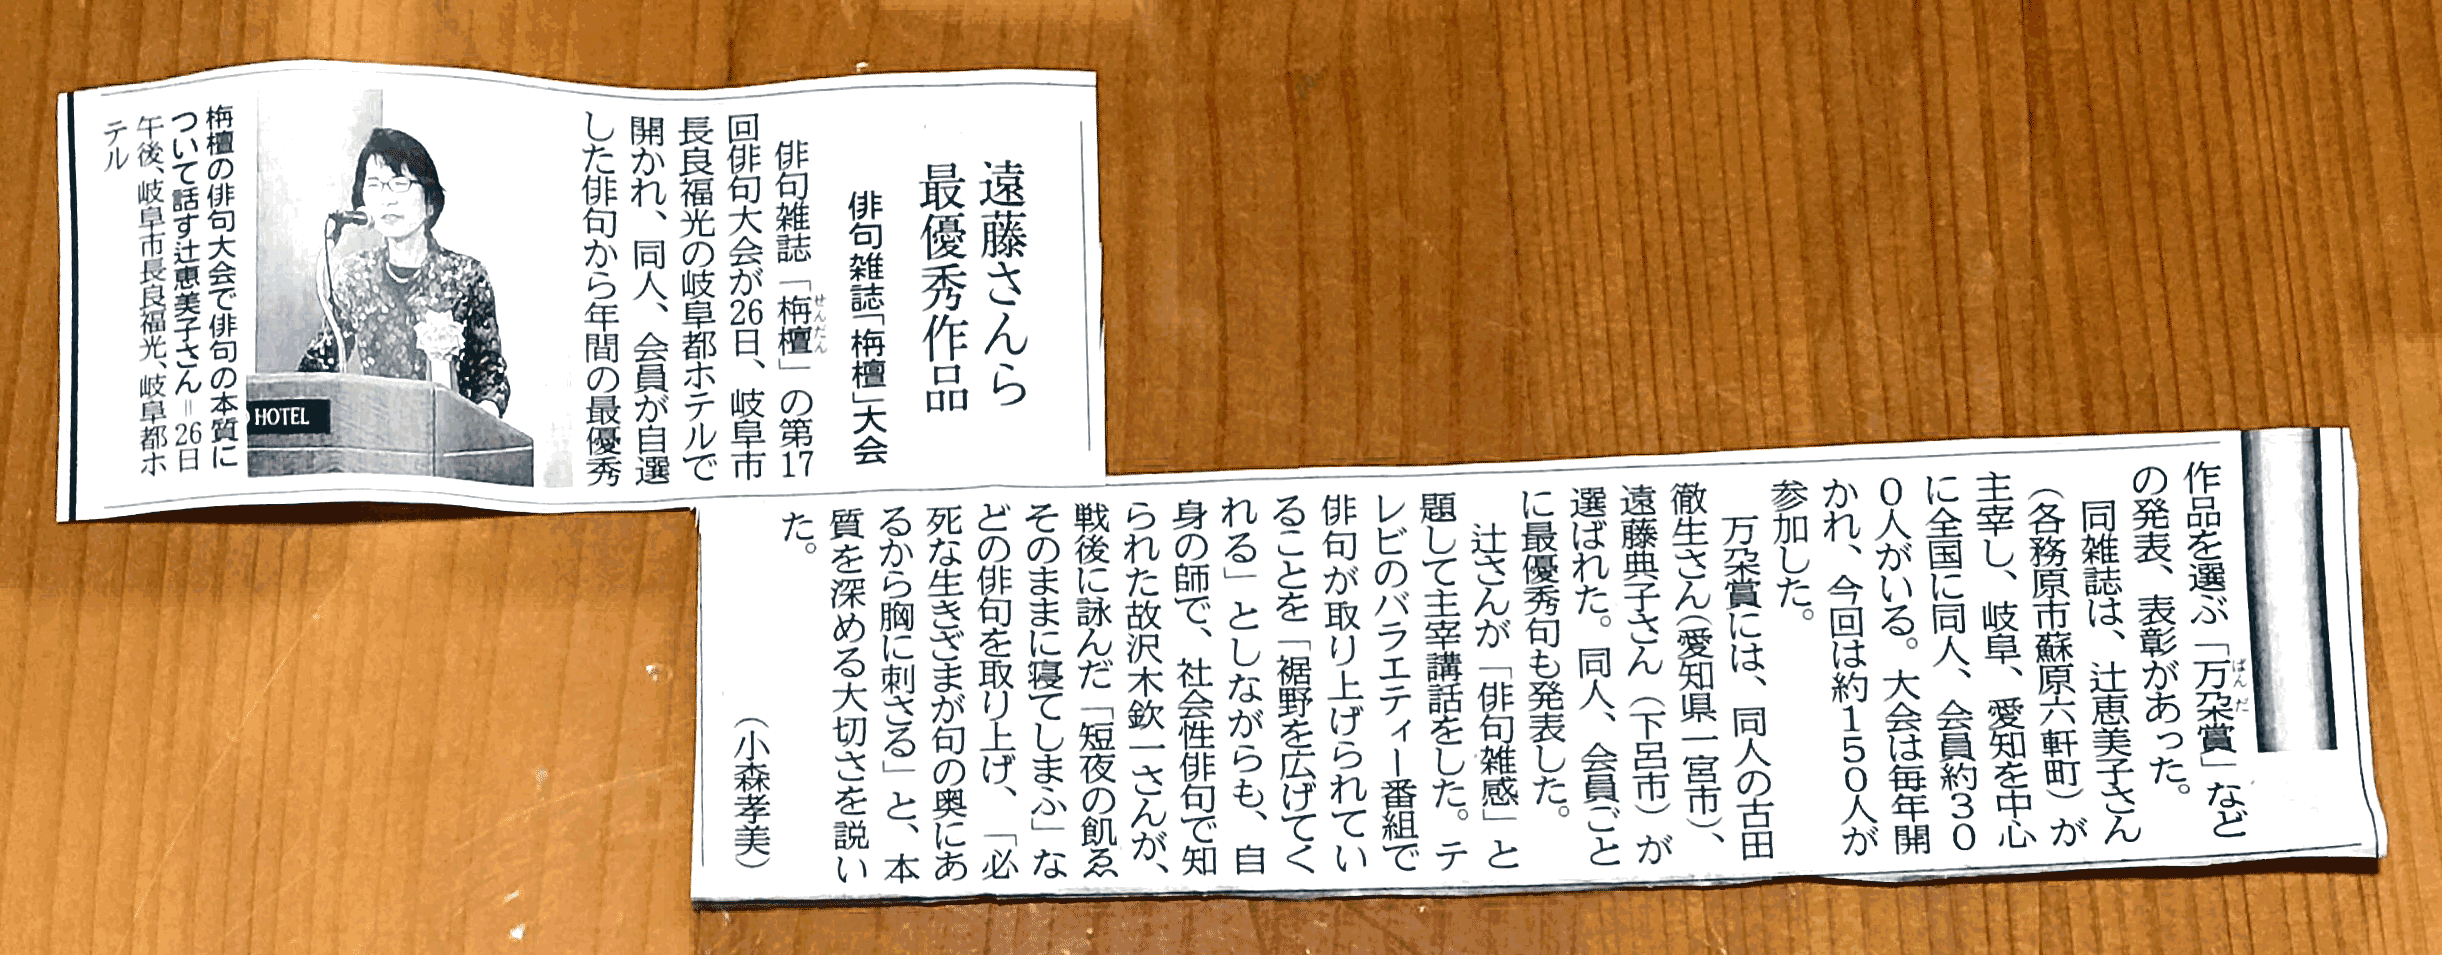 遠藤さんら
最優秀作品
俳句雑誌「栴檀」大会
俳句雑誌「栴檀」の第17
せんだん
回俳句大会が26日、岐阜市
長良福光の岐阜都ホテルで
開かれ、同人、会員が自選
した俳句から年間の最優秀
HOTEL
栴檀の俳句大会で俳句の本質に
ついて話す辻恵美子さん＝26日
午後、岐阜市長良福光、岐阜都ホ
テル
作品を選ぶ「万朶賞」など
ばんだ
の発表、表彰があった。
同雑誌は、辻恵美子さん
（各務原市蘇原六軒町）が
主宰し、岐阜、愛知を中心
に全国に同人、会員約30
0人がいる。大会は毎年開
かれ、今回は約150人が
参加した。
万朶賞には、同人の古田
徹生さん（愛知県一宮市）、
遠藤典子さん（下呂市）が
選ばれた。同人、会員ごと
に最優秀句も発表した。
辻さんが「俳句雑感」と
題して主宰講話をした。テ
レビのバラエティー番組で
俳句が取り上げられてい
ることを「裾野を広げてく
れる」としながらも、自
身の師で、社会性俳句で知
られた故沢木欽一さんが、
戦後に詠んだ「短夜の飢ゑ
そのままに寝てしまふ」な
どの俳句を取り上げ、「必
死な生きざまが句の奥にあ
るから胸に刺さる」と、本
質を深める大切さを説い
た。
（小森孝美）